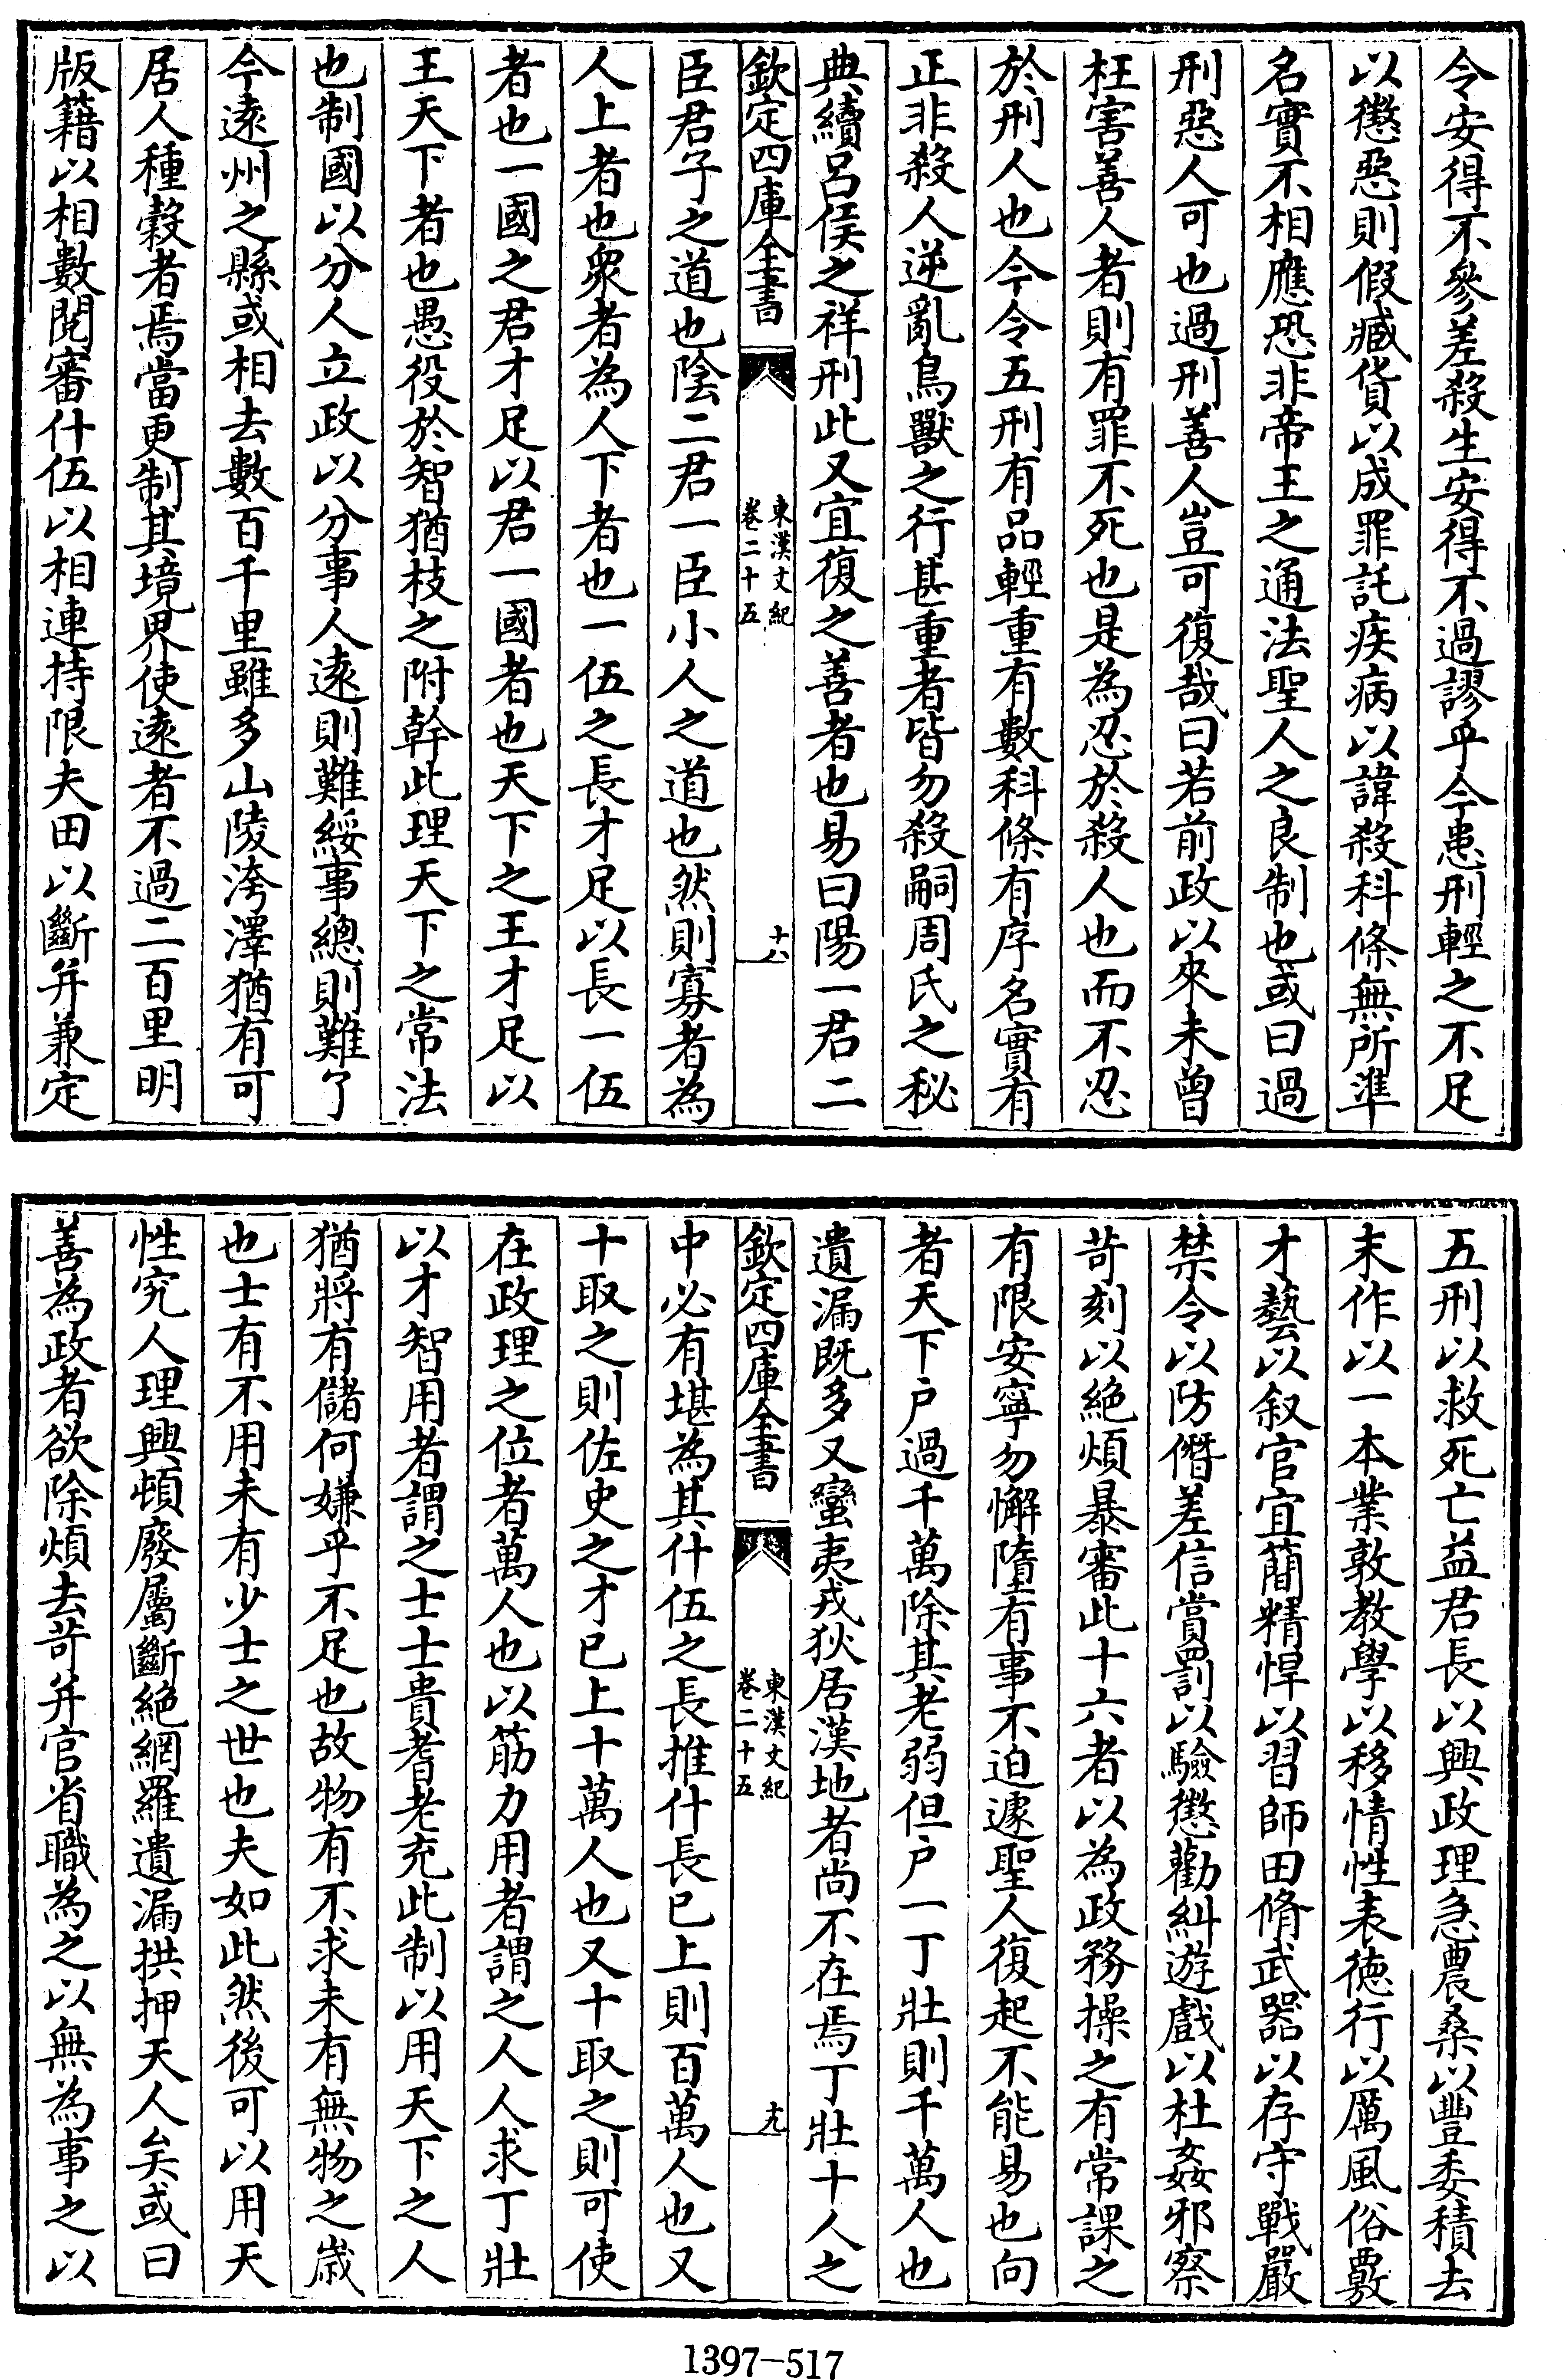 令安得不參差殺生安得不過謬乎今患刑輕之不足
以懲惡則假臧貨以成罪託疾病以諱殺科條無所準
名實不相應恐非帝王之通法聖人之良制也或曰過
刑惡人可也過刑善人豈可復哉曰若前政以來未曾
枉害善人者則有罪不死也是為忍於殺人也而不忍
於刑人也今令五刑有品輕重有數科條有序名實有
正非殺人逆亂鳥獸之行甚重者皆勿殺嗣周氏之秘
典續呂侯之祥刑此又宜復之善者也易曰陽一君二
欽定四庫全書
東漢文紀
卷二十五
十八
臣君子之道也陰二君一臣小人之道也然則寡者為
人上者也衆者為人下者也一伍之長才足以長一伍
者也一國之君才足以君一國者也天下之王才足以
王天下者也愚役於智猶枝之附幹此理天下之常法
也制國以分人立政以分事人遠則難綏事總則難了
今遠州之縣或相去數百千里雖多山陵洿澤猶有可
居人種穀者焉當更制其境界使遠者不過二百里明
版籍以相數閱審什伍以相連持限夫田以斷并兼定
五刑以救死亡益君長以興政理急農桑以豐委積去
末作以一本業敦教學以移情性表德行以厲風俗覈
才藝以叙官宜簡精悍以習師田脩武器以存守戰嚴
禁令以防僭差信賞罰以驗懲勸糾遊戲以杜姦邪察
苛刻以絶煩暴審此十六者以為政務操之有常課之
有限安寧勿懈墮有事不迫遽聖人復起不能易也向
者天下户過千萬除其老弱但户一丁壯則千萬人也
遺漏既多又蠻夷戎狄居漢地者尚不在焉丁壯十人之
欽定四庫全書
東漢文紀
卷二十五
十九
中必有堪為其什伍之長推什長已上則百萬人也又
十取之則佐史之才已上十萬人也又十取之則可使
在政理之位者萬人也以筋力用者謂之人人求丁壯
以才智用者謂之士士貴耆老充此制以用天下之人
猶將有儲何嫌乎不足也故物有不求未有無物之歲
也士有不用未有少士之世也夫如此然後可以用天
性究人理興頓廢屬斷絶網羅遺漏拱押天人矣或曰
善為政者欲除煩去苛并官省職為之以無為事之以
1397-517